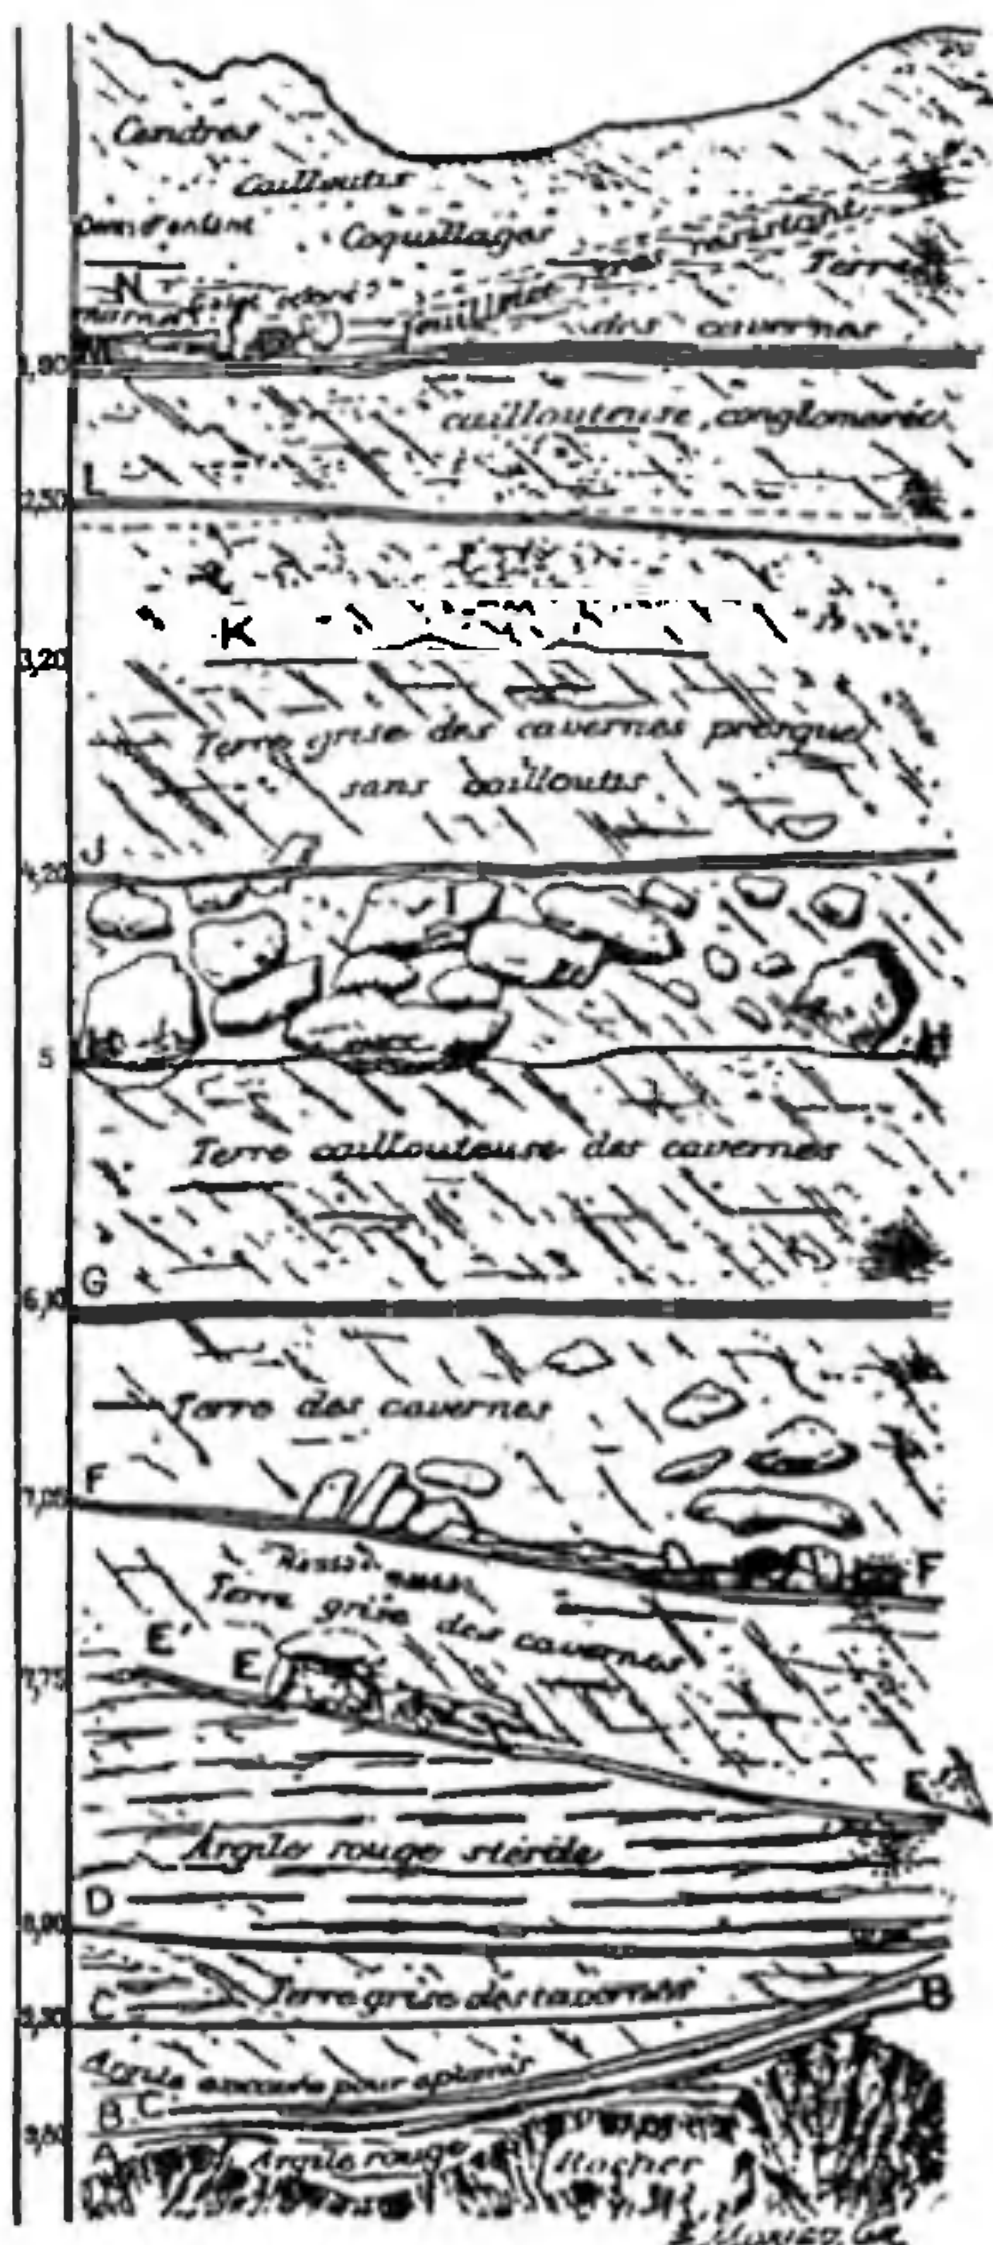 Cendres
Cailloutis
Coquillages
très résistant
Terre
N
feuilleté
des cavernes
M
1,90
caillouteuse, conglomérée
L
2,50
K
3,20
Terre grise des cavernes presque
sans cailloutis
J
4,20
I
H
H
5
Terre caillouteuse des cavernes
G
6,10
Terre des cavernes
F
7,05
F
Terre grise des cavernes
E'
E
7,75
E
Argile rouge stérile
D
8,90
Terre grise des cavernes
B
C
9,30
B C
A
Argile rouge
Rocher